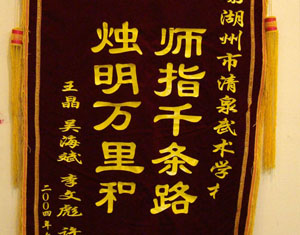 湖州市清泉武术学
师指千条路
烛明万里和
王晶 吴海斌 李文彪 许
二00四年